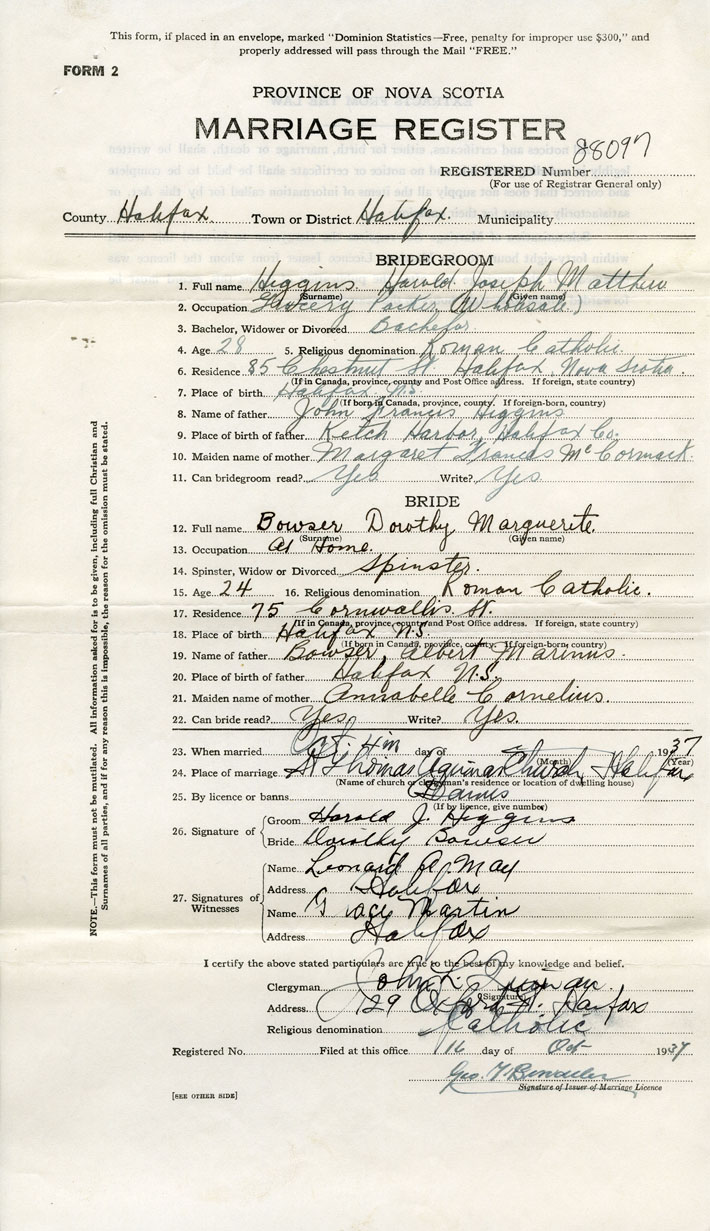 This form, if placed in an envelope, marked "Dominion Statistics—Free, penalty for improper use $300," and
properly addressed will pass through the Mail "FREE."
FORM 2
PROVINCE OF NOVA SCOTIA
MARRIAGE REGISTER
88097
REGISTERED Number
(For use of Registrar General only)
County Halifax Town or District Halifax. Municipality
BRIDEGROOM
1. Full name Higgins Harold Joseph Matthew
(Surname) (Given name)
2. Occupation Grocery Packer (Wholesale)
3. Bachelor, Widower or Divorced Bachelor
4. Age 28 5. Religious denomination Roman Catholic.
6. Residence 85 Chestnut St. Halifax, Nova Scotia.
(If in Canada, province, county and Post Office address. If foreign, state country)
7. Place of birth Halifax N.S.
(If born in Canada, province, county. If foreign-born, country)
8. Name of father John Francis Higgins
9. Place of birth of father Ketch Harbor, Halifax Co.
10. Maiden name of mother Margaret Frances McCormack.
11. Can bridegroom read? Yes Write? Yes
BRIDE
12. Full name Bowser Dorothy Marguerite.
(Surname) (Given name)
13. Occupation At Home.
14. Spinster, Widow or Divorced Spinster.
15. Age 24 16. Religious denomination Roman Catholic.
17. Residence 75 Cornwallis St.
(If in Canada, province, county and Post Office address. If foreign, state country)
18. Place of birth Halifax N.S.
(If born in Canada, province, county. If foreign-born, country)
19. Name of father Bowser, Albert Marinus.
20. Place of birth of father Halifax N.S.
21. Maiden name of mother Annabelle Cornelius.
22. Can bride read? Yes Write? Yes.
23. When married day of 1937
(Month) (Year)
24. Place of marriage St Thomas Aquinas Church, Halifax
(Name of church or clergyman's residence or location of dwelling house)
25. By licence or banns Banns
(If by licence, give number)
26. Signature of
Groom Harold J. Higgins
Bride Dorothy Bowser
27. Signatures of Witnesses
Name Leonard A. May
Address Halifax
Name Grace Martin
Address Halifax
I certify the above stated particulars are true to the best of my knowledge and belief.
Clergyman John L. Quinan.
(Signature)
Address 129 Oxford St. Halifax
Religious denomination Catholic
Registered No. Filed at this office 16 day of Oct 1937
Geo.
Signature of Issuer of Marriage Licence
[SEE OTHER SIDE]
NOTE.—This form must not be mutilated. All information asked for is to be given, including full Christian and
Surnames of all parties, and if for any reason this is impossible, the reason for the omission must be stated.